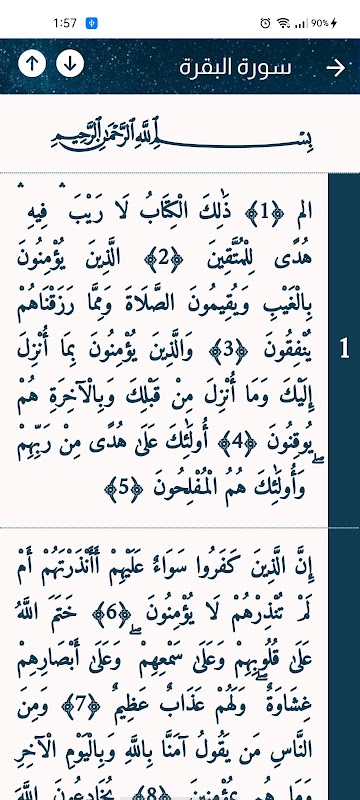 1:57 90%
سورة البقرة
بِسْمِ اللَّهِ الرَّحْمَٰنِ الرَّحِيمِ
الم ﴿1﴾ ذَٰلِكَ الْكِتَابُ لَا رَيْبَ ۛ فِيهِ ۛ
هُدًى لِلْمُتَّقِينَ ﴿2﴾ الَّذِينَ يُؤْمِنُونَ
بِالْغَيْبِ وَيُقِيمُونَ الصَّلَاةَ وَمِمَّا رَزَقْنَاهُمْ
يُنْفِقُونَ ﴿3﴾ وَالَّذِينَ يُؤْمِنُونَ بِمَا أُنْزِلَ
إِلَيْكَ وَمَا أُنْزِلَ مِنْ قَبْلِكَ وَبِالْآخِرَةِ هُمْ
يُوقِنُونَ ﴿4﴾ أُولَٰئِكَ عَلَىٰ هُدًى مِنْ رَبِّهِمْ ۖ
وَأُولَٰئِكَ هُمُ الْمُفْلِحُونَ ﴿5﴾
1
إِنَّ الَّذِينَ كَفَرُوا سَوَاءٌ عَلَيْهِمْ أَأَنْذَرْتَهُمْ أَمْ
لَمْ تُنْذِرْهُمْ لَا يُؤْمِنُونَ ﴿6﴾ خَتَمَ اللَّهُ
عَلَىٰ قُلُوبِهِمْ وَعَلَىٰ سَمْعِهِمْ ۖ وَعَلَىٰ أَبْصَارِهِمْ
غِشَاوَةٌ ۖ وَلَهُمْ عَذَابٌ عَظِيمٌ ﴿7﴾ وَمِنَ
النَّاسِ مَن يَقُولُ آمَنَّا بِاللَّهِ وَبِالْيَوْمِ الْآخِرِ
وَمَا هُم بِمُؤْمِنِينَ ﴿8﴾ يُخَادِعُونَ اللَّهَ